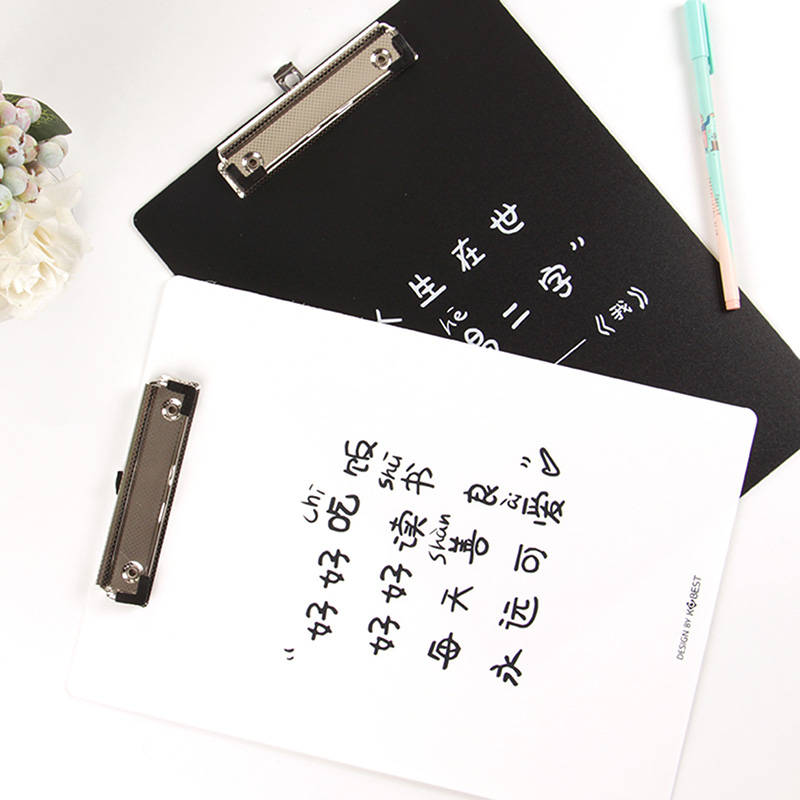 生在世
hē
二字”
——《我》
“
chī
好好吃饭
shū
好好读书
shàn
每天善良
ài
永远可爱
”
DESIGN BY KOBEST